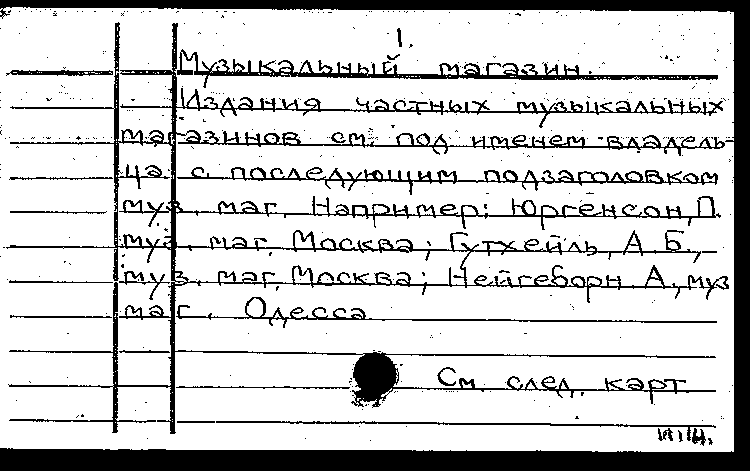 1.
Музыкальный магазин.
Издания частных музыкальных
магазинов см. под именем владель-
ца с последующим подзаголовком
муз. маг. Например: Юргенсон, П.
муз. маг. Москва; Гутхейль, А. Б.,
муз. маг. Москва; Нейгеборн А., муз
маг. Одесса
См. след. карт.